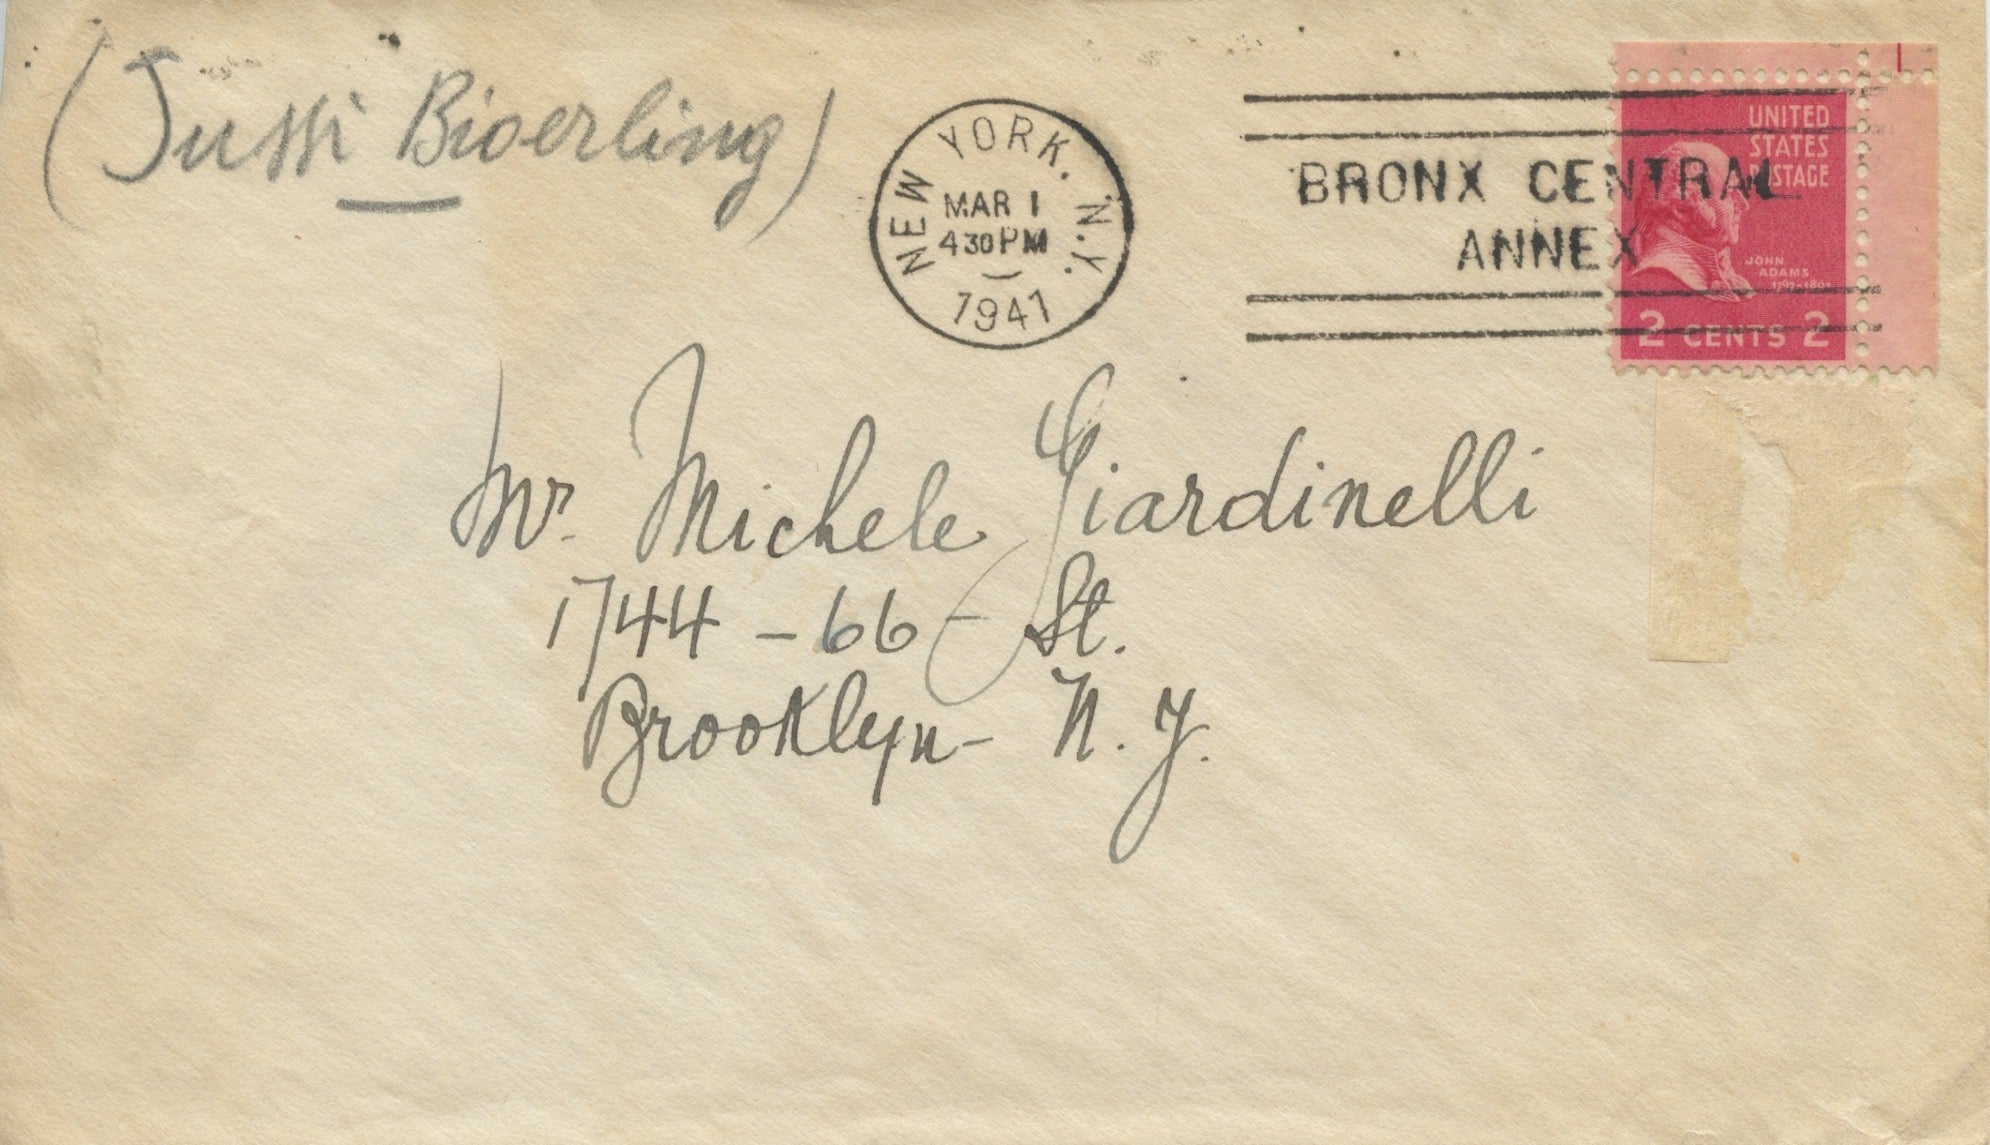 (Jussi Bioerling)
NEW YORK. N.Y.
MAR 1
4 30 PM
1941
BRONX CENTRAL
ANNEX
UNITED
STATES
POSTAGE
JOHN
ADAMS
2 CENTS 2
Mr. Michele Giardinelli
1744 - 66 - St.
Brooklyn - N. Y.